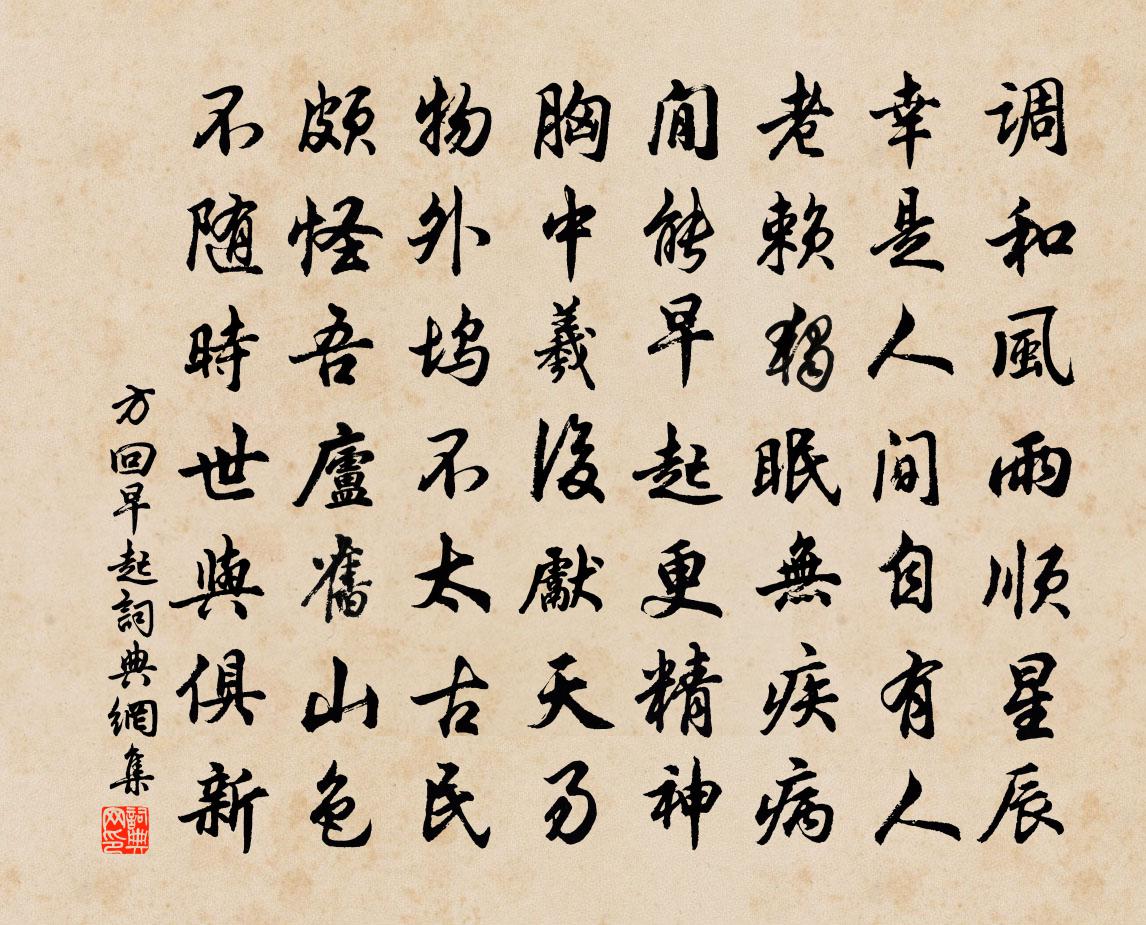 调和風雨顺星辰
幸是人间自有人
老赖獨眠無疾病
閒能早起更精神
胸中羲後獻天易
物外坞不太古民
颇怪吾廬舊山色
不随時世與俱新
方回早起詞典網集
詞典网印